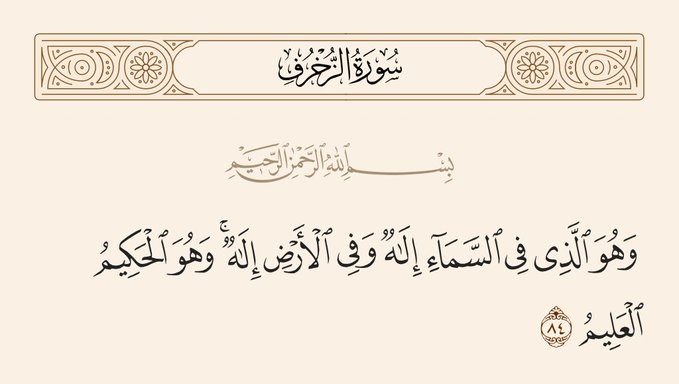 سُورَةُ الزُّخْرُفِ
بِسْمِ اللَّهِ الرَّحْمَٰنِ الرَّحِيمِ
وَهُوَ ٱلَّذِى فِى ٱلسَّمَآءِ إِلَـٰهٌ وَفِى ٱلْأَرْضِ إِلَـٰهٌ ۚ وَهُوَ ٱلْحَكِيمُ
ٱلْعَلِيمُ ٨٤